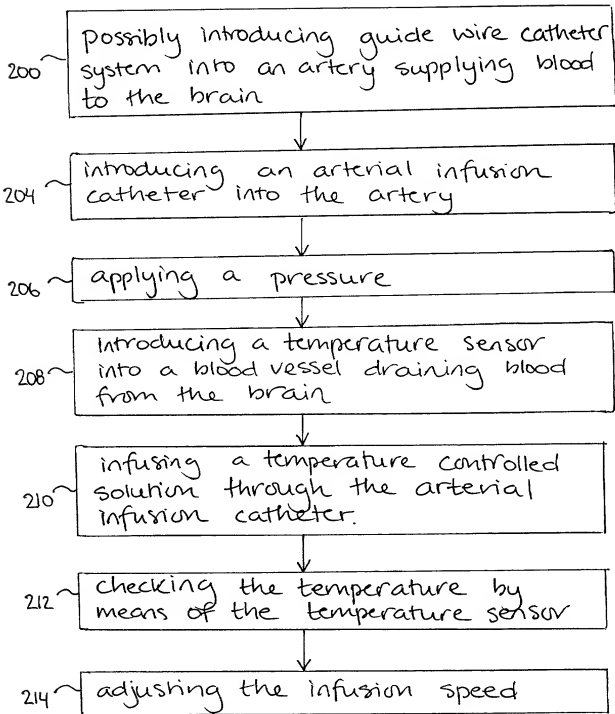 possibly introducing guide wire catheter
200 system into an artery supplying blood
to the brain
introducing an arterial infusion
204 catheter into the artery
206 applying a pressure
introducing a temperature sensor
208 into a blood vessel draining blood
from the brain
infusing a temperature controlled
210 solution through the arterial
infusion catheter.
checking the temperature by
212 means of the temperature sensor
214 adjusting the infusion speed